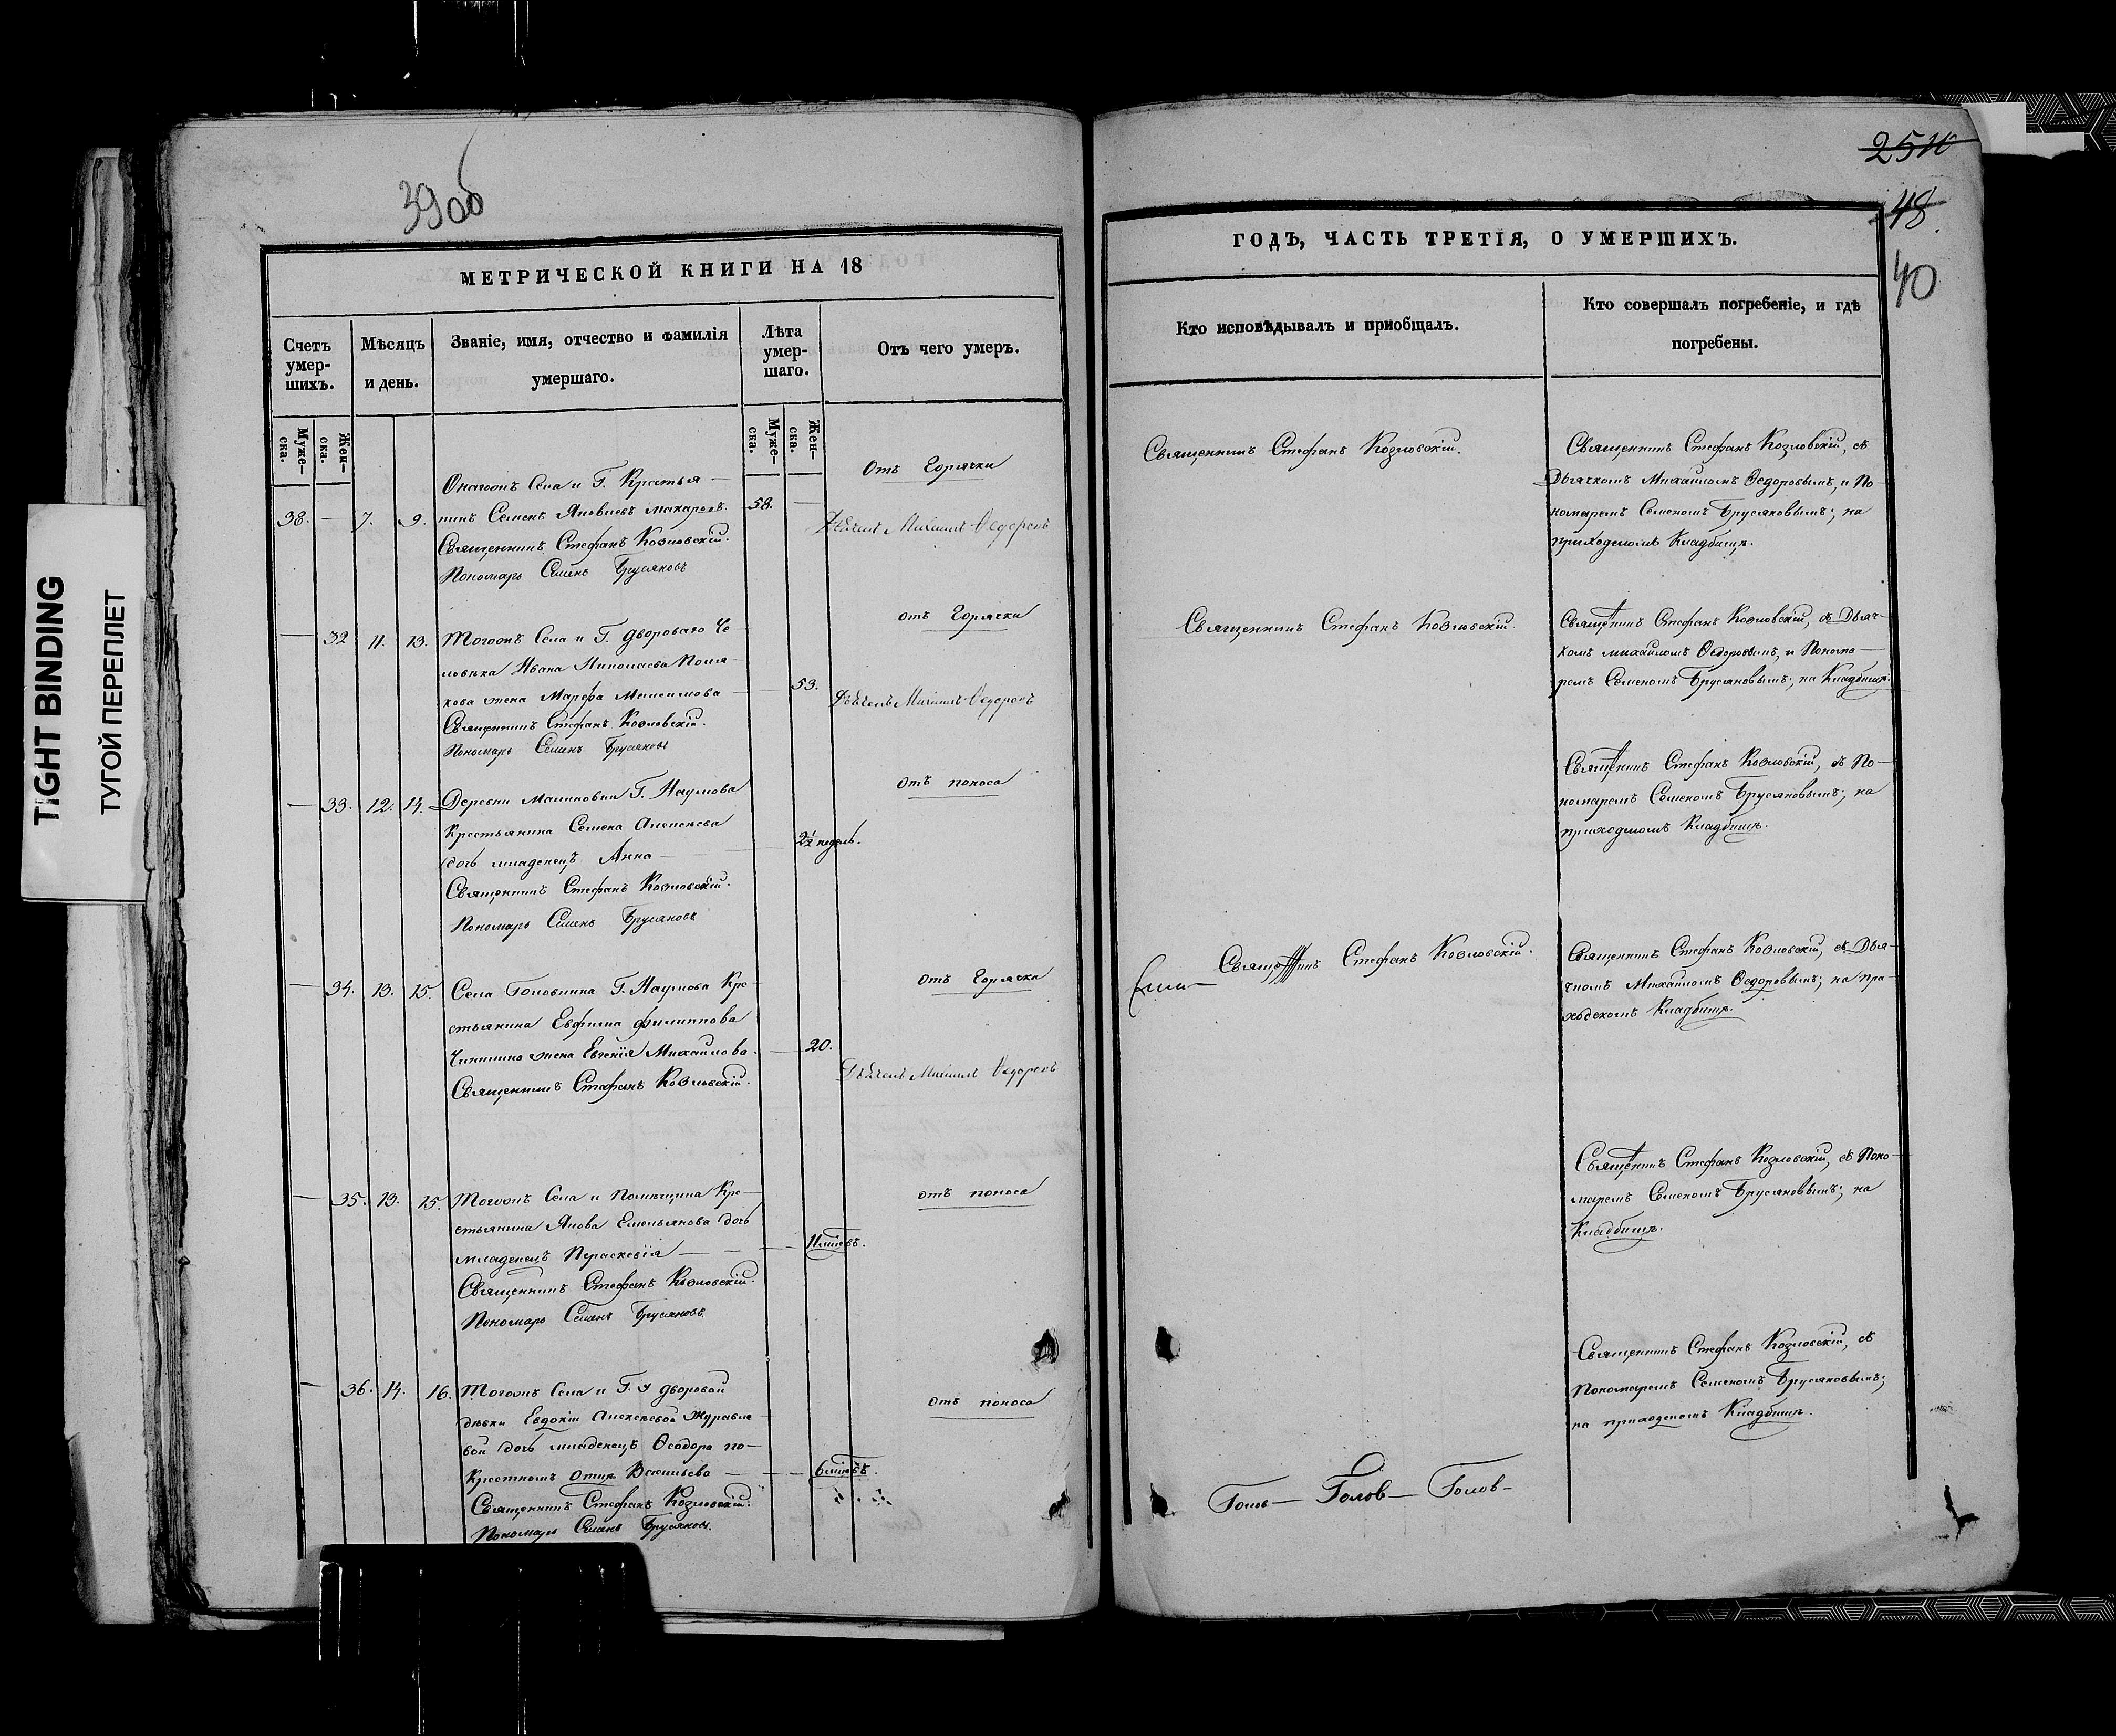 TIGHT BINDING
ТУГОЙ ПЕРЕПЛЕТ
39об
МЕТРИЧЕСКОЙ КНИГИ НА 18
Счетъ умер-шихъ.
Мѣсяцъ и день.
Званіе, имя, отчество и фамилія умершаго.
Лѣта умер-шаго.
Отъ чего умеръ.
Муже-ска.
Жен-ска.
Муже-ска.
Жен-ска.
Села и Г. Крестья-
38. — 7. 9. нинъ Семенъ Яковлевъ Макаровъ. 58. —
Отъ Горячки
Священникъ Стефанъ Козловскій.
Пономарь Семенъ Брусяновъ
Дьячекъ Михаилъ Ѳедоровъ
— 32 11. 13. Тогожъ Села и Г. двороваго Че-
ловѣка Ивана Николаева Поля-
кова жена Марфа Максимова — 53.
отъ Горячки
Священникъ Стефанъ Козловскій.
Пономарь Семенъ Брусяновъ
Дьячекъ Михаилъ Ѳедоровъ
— 33. 12. 14. Деревни Г. Наумова
Крестьянина Семена Алексѣева
дочь младенецъ Анна — 2½ недѣль.
отъ поноса
Священникъ Стефанъ Козловскій.
Пономарь Семенъ Брусяновъ
— 34. 13. 15. Села Головнина Г. Наумова Кре-
стьянина Евфима Филиппова
жена Евгенія Михайлова. — 20.
отъ Горячки
Священникъ Стефанъ Козловскій.
Дьячекъ Михаилъ Ѳедоровъ
— 35. 13. 15. Тогожъ Села и Помѣщика Кре-
стьянина Якова Емельянова дочь
младенецъ Параскевія —
отъ поноса
Священникъ Стефанъ Козловскій.
Пономарь Семенъ Брусяновъ.
— 36. 14. 16. Тогожъ Села и Г. у дворовой
дѣвки Евдокіи Алексѣевой Журавле-
вой дочь младенецъ Ѳеодора по-
крестномъ отцѣ Васильева —
отъ поноса
Священникъ Стефанъ Козловскій.
Пономарь Семенъ Брусяновъ.
48
40
ГОДЪ, ЧАСТЬ ТРЕТІЯ, О УМЕРШИХЪ.
Кто исповѣдывалъ и приобщалъ.
Кто совершалъ погребеніе, и гдѣ
погребены.
Священникъ Стефанъ Козловскій.
Священникъ Стефанъ Козловскій, съ
Дьячкомъ Михаиломъ Ѳедоровымъ, и По-
номаремъ Семеномъ Брусяновымъ; на
приходскомъ Кладбищѣ.
Священникъ Стефанъ Козловскій.
Священникъ Стефанъ Козловскій, съ Дьяч-
комъ Михаиломъ Ѳедоровымъ, и Понома-
ремъ Семеномъ Брусяновымъ; на Кладбищѣ.
Священникъ Стефанъ Козловскій, съ По-
номаремъ Семеномъ Брусяновымъ; на
приходскомъ Кладбищѣ.
Священникъ Стефанъ Козловскій.
Священникъ Стефанъ Козловскій, съ Дья-
чкомъ Михаиломъ Ѳедоровымъ; на при-
ходскомъ Кладбищѣ.
Священникъ Стефанъ Козловскій, съ Поно-
маремъ Семеномъ Брусяновымъ; на
Кладбищѣ.
Священникъ Стефанъ Козловскій, съ
Пономаремъ Семеномъ Брусяновымъ;
на приходскомъ Кладбищѣ.
Голов— Голов— Голов—